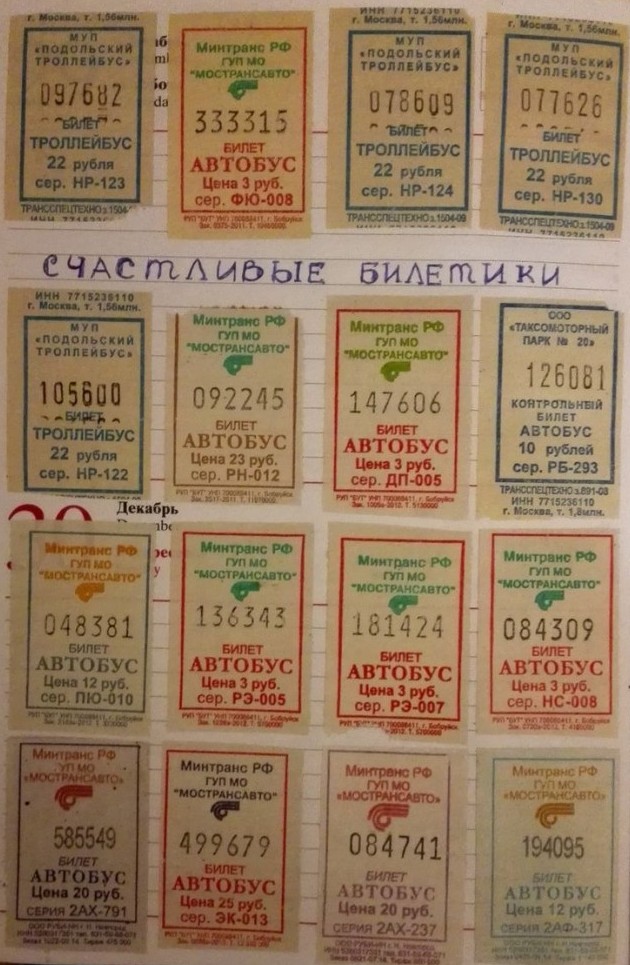 г. Москва, т. 1,56млн.
МУП
«ПОДОЛЬСКИЙ
ТРОЛЛЕЙБУС»
097682
БИЛЕТ
ТРОЛЛЕЙБУС
22 рубля
сер. НР-123
ТРАНССПЕЦТЕХНО з.1504-09
Минтранс РФ
ГУП МО
"МОСТРАНСАВТО"
333315
БИЛЕТ
АВТОБУС
Цена 3 руб.
сер. ФЮ-008
ИНН 7715236110
г. Москва, т. 1,56млн.
МУП
«ПОДОЛЬСКИЙ
ТРОЛЛЕЙБУС»
078609
БИЛЕТ
ТРОЛЛЕЙБУС
22 рубля
сер. НР-124
ТРАНССПЕЦТЕХНО з.1504-09
г. Москва, т. 1,56млн.
МУП
«ПОДОЛЬСКИЙ
ТРОЛЛЕЙБУС»
077626
БИЛЕТ
ТРОЛЛЕЙБУС
22 рубля
сер. НР-130
ТРАНССПЕЦТЕХНО з.1504-09
СЧАСТЛИВЫЕ БИЛЕТИКИ
ИНН 7715236110
г. Москва, т. 1,56млн.
МУП
«ПОДОЛЬСКИЙ
ТРОЛЛЕЙБУС»
105600
БИЛЕТ
ТРОЛЛЕЙБУС
22 рубля
сер. НР-122
Минтранс РФ
ГУП МО
"МОСТРАНСАВТО"
092245
БИЛЕТ
АВТОБУС
Цена 23 руб.
сер. РН-012
Минтранс РФ
ГУП МО
"МОСТРАНСАВТО"
147606
БИЛЕТ
АВТОБУС
Цена 3 руб.
сер. ДП-005
ООО
«ТАКСОМОТОРНЫЙ
ПАРК № 20»
126081
КОНТРОЛЬНЫЙ
БИЛЕТ
АВТОБУС
10 рублей
сер. РБ-293
ТРАНССПЕЦТЕХНО з.891-08
ИНН 7715236110
г. Москва, т. 1,8млн.
Декабрь
Минтранс РФ
ГУП МО
"МОСТРАНСАВТО"
048381
БИЛЕТ
АВТОБУС
Цена 12 руб.
сер. ПЮ-010
Минтранс РФ
ГУП МО
"МОСТРАНСАВТО"
136343
БИЛЕТ
АВТОБУС
Цена 3 руб.
сер. РЭ-005
Минтранс РФ
ГУП МО
"МОСТРАНСАВТО"
181424
БИЛЕТ
АВТОБУС
Цена 3 руб.
сер. РЭ-007
Минтранс РФ
ГУП МО
"МОСТРАНСАВТО"
084309
БИЛЕТ
АВТОБУС
Цена 3 руб.
сер. НС-008
Минтранс РФ
ГУП МО
«МОСТРАНСАВТО»
585549
БИЛЕТ
АВТОБУС
Цена 20 руб.
СЕРИЯ 2АХ-791
Минтранс РФ
ГУП МО
"МОСТРАНСАВТО"
499679
БИЛЕТ
АВТОБУС
Цена 25 руб.
сер. ЭК-013
Минтранс РФ
ГУП МО
«МОСТРАНСАВТО»
084741
БИЛЕТ
АВТОБУС
Цена 20 руб.
СЕРИЯ 2АХ-237
Минтранс РФ
ГУП МО
«МОСТРАНСАВТО»
194095
БИЛЕТ
АВТОБУС
Цена 12 руб.
СЕРИЯ 2АФ-317